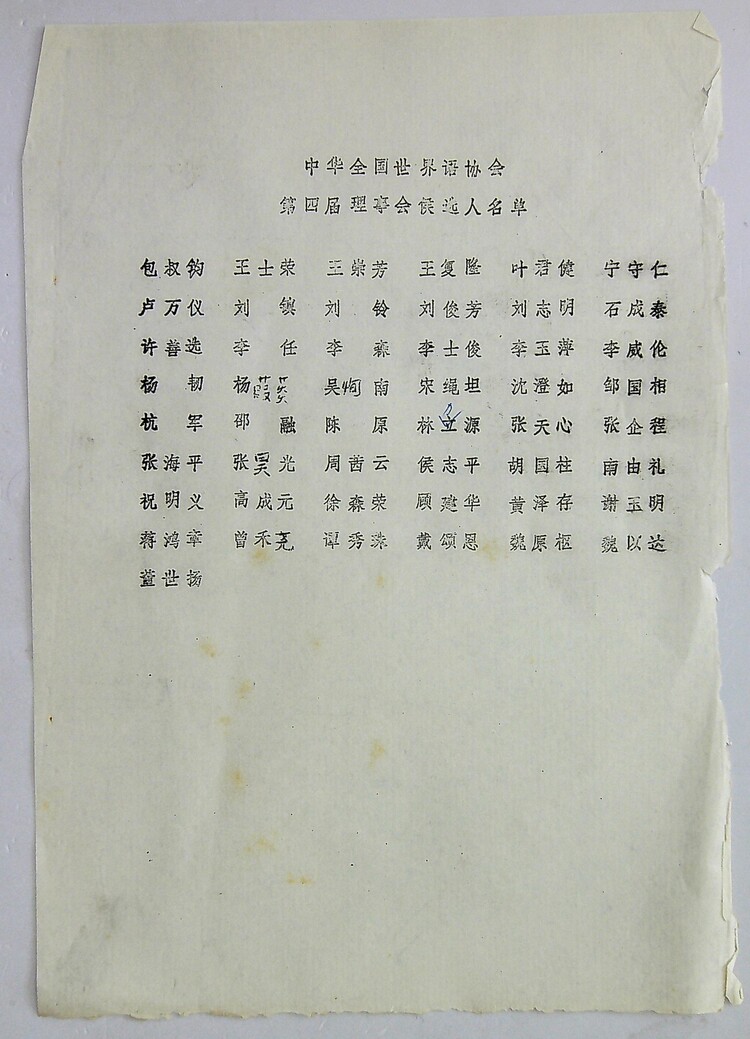 中华全国世界语协会
第四届理事会候选人名单
包叔钧 王士荣 王崇芳 王复隆 叶君健 宁守仁
卢万仪 刘镇 刘铃 刘俊芳 刘志明 石成泰
许善选 李任 李森 李士俊 李玉萍 李威伦
杨韧 杨葭 吴柯南 宋绳坦 沈澄如 邹国相
杭军 邵融 陈原 林立源 张天心 张企程
张海平 张昊光 周茜云 侯志平 胡国柱 南由礼
祝明义 高成元 徐森荣 顾建华 黄泽存 谢玉明
蒋鸿章 曾禾尧 谭秀珠 戴颂恩 魏原枢 魏以达
蓝世扬